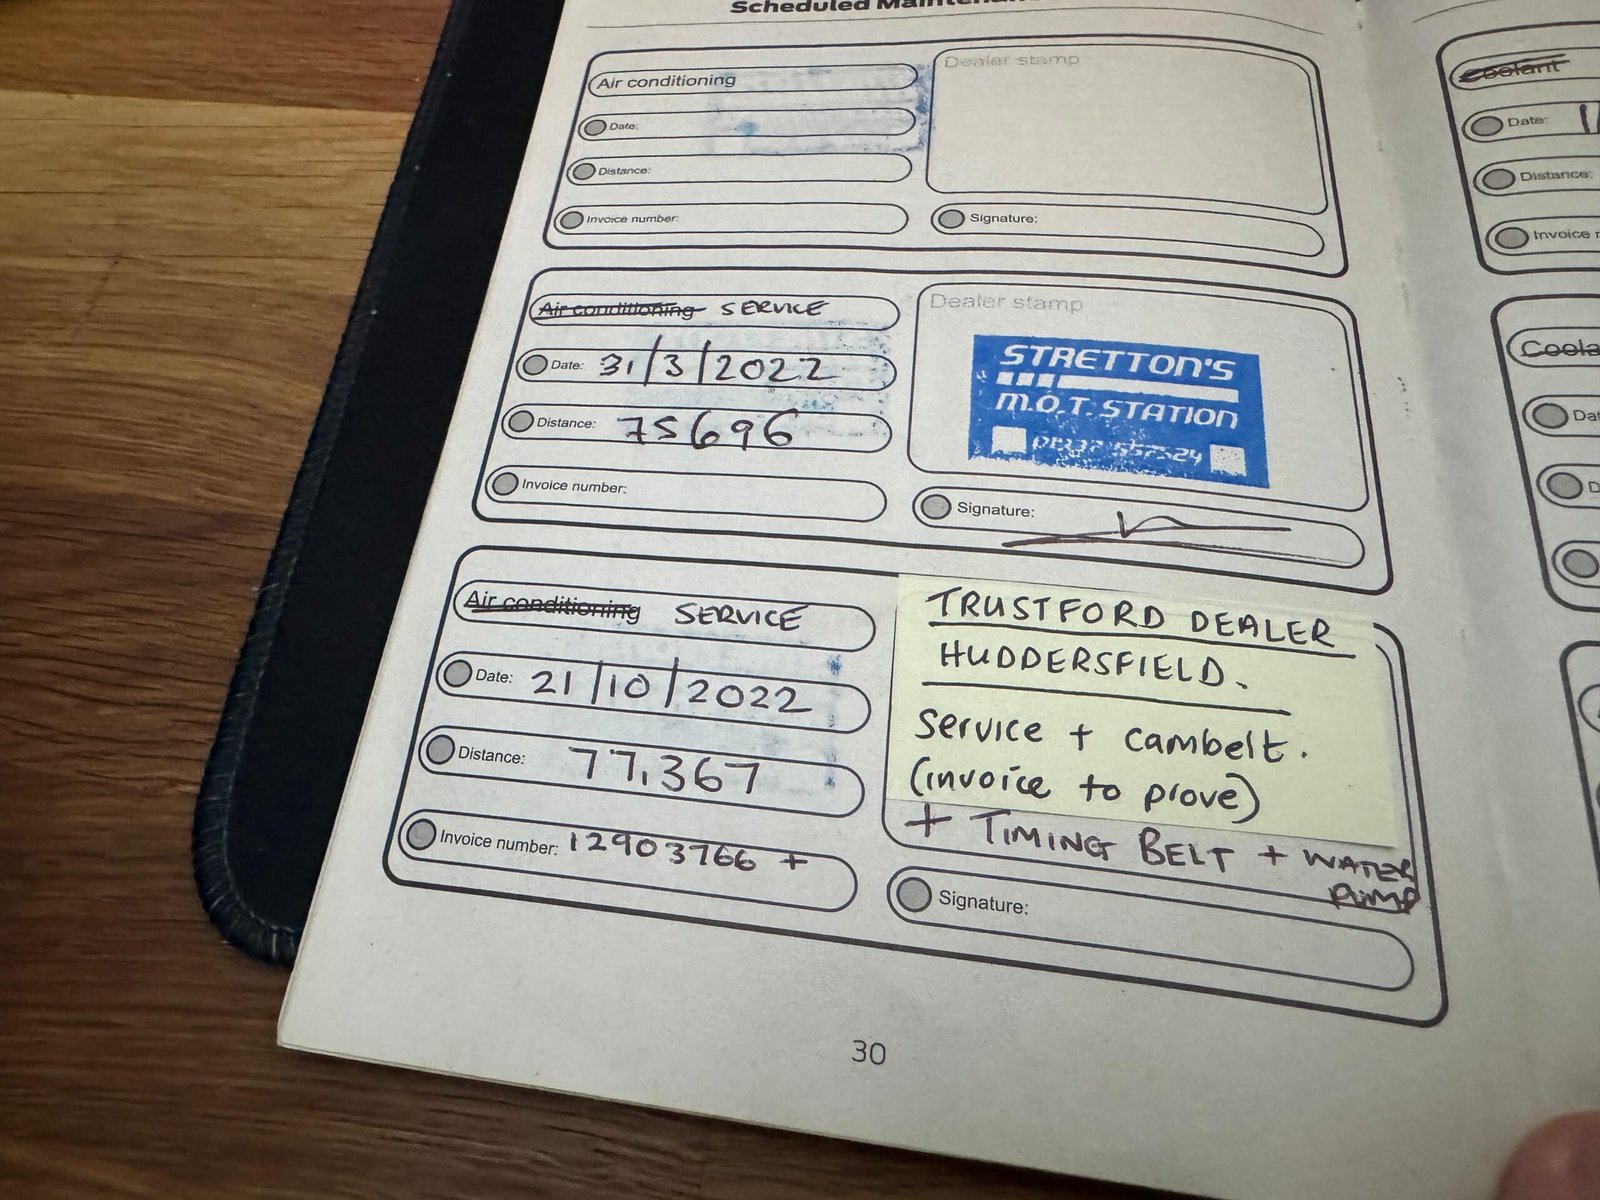 Scheduled
Air conditioning
Date:
Distance:
Invoice number:
Dealer stamp
Signature:
Air conditioning SERVICE
Date: 31/3/2022
Distance: 75696
Invoice number:
Dealer stamp
STRETTON'S
M.O.T. STATION
Signature:
Air conditioning SERVICE
Date: 21/10/2022
Distance: 77,367
Invoice number: 12903766 +
TRUSTFORD DEALER
HUDDERSFIELD.
Service + cambelt.
(invoice to prove)
+ TIMING BELT + WATER
PUMP
Signature:
30
Coolant
Date:
Distance:
Invoice